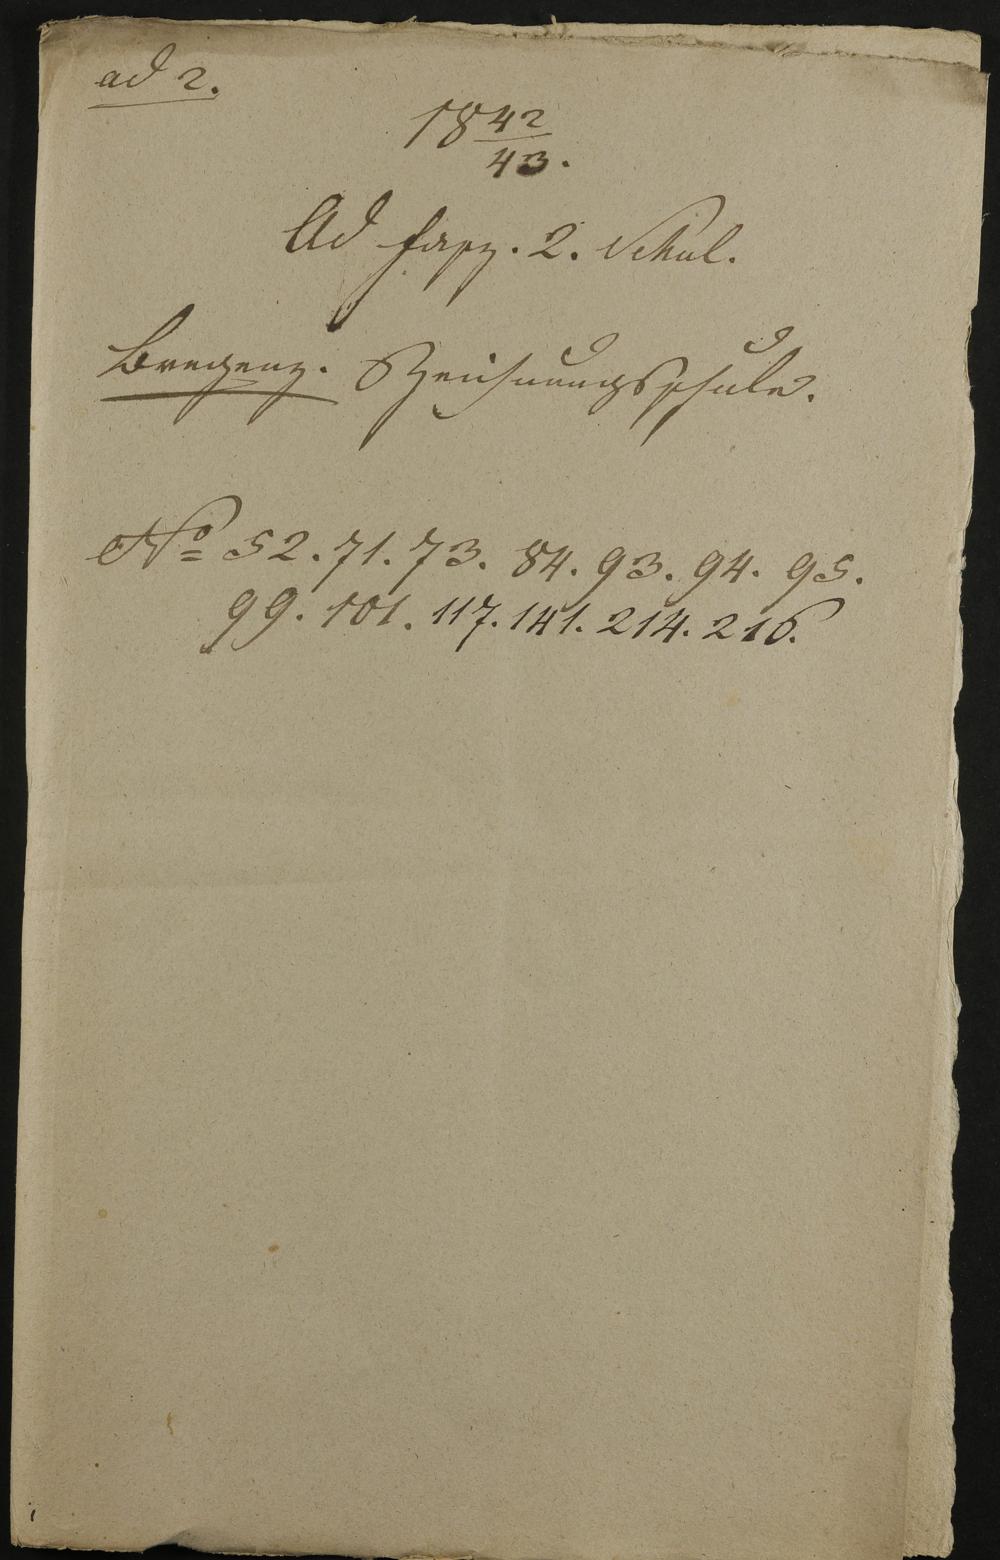 ad 2.
18 42/43.
Ad fasz. 2. Schul.
Bregenz. Zeichnungsschule.
No 52. 71. 73. 84. 93. 94. 95.
99. 101. 117. 141. 214. 216.